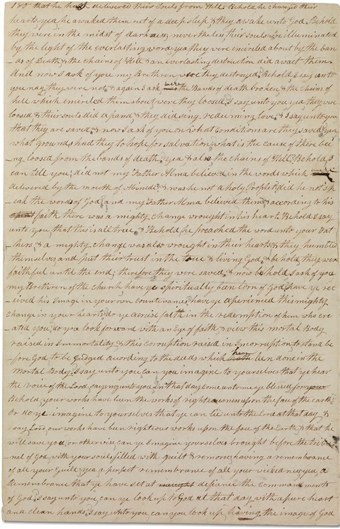 that he hath delivered their Souls from Hell Behold he changed their
hearts yea he awaked them out of a deep sleep & they awoke unto God Behold
they were in the midst of darkness nevertheless their souls were illuminated
by the light of the everlasting word yea they were encircled about by the ban
ds of Death & the chains of Hell & an everlasting destruction did await them
And now I ask of you my Brethren were they destroyed Behold I say unto
you nay they were not & again I ask were the bands of death broken & the chains of
hell which encircled them about were they loosed I say unto you yea they were
loosed & their souls did expand & they did sing redeeming love & I say unto you
that they are saved & now I ask of you on what conditions are they saved yea
what grounds had they to hope for salvation what is the cause of their bee
ing loosed from the bands of death yea & also the chains of Hell Behold I
can tell you did not my Father Alma believe in the words which
delivered by the mouth of Abinadi & was he not a holy Prophet did he not sp
eak the words of God & my Father Alma believed them & according to his
faith there was a mighty change wrought in his heart Behold I say
unto you that this is all true & Behold he preached the word unto your Fat
hers & a mighty change was also wrought in their hearts & they humbled
themselves and put their trust in the true & living God & behold they were
faithful until the end therefore they were saved & now behold I ask of you
my Brethren of the church have ye spiritually been born of God have ye rec
eived his image in your countenances have ye experienced this mighty
change in your hearts do ye exercise faith in the redemption of him who cre
ated you do you look forward with an eye of faith & view this mortal Body
raised in immortality & this corruption raised in incorruption to stand be
fore God to be judged according to the deeds which have been done in the
Mortal Body I say unto you can you imagine to yourselves that ye hear
the voice of the Lord saying unto you in that day come unto me ye blessed for
Behold your works have been the works of righteousness upon the face of the earth
or do ye imagine to yourselves that ye can lie unto the Lord in that day &
say Lord our works have been righteous works upon the face of the Earth & that he
will save you or otherwise can ye imagine yourselves brought before the tribu
nal of God with your souls filled with guilt & remorse having a remembrance
of all your guilt yea a perfect remembrance of all your wickedness yea a
remembrance that ye have set at defiance the commandments
of God I say unto you can ye look up to God at that day with a pure heart
and clean hands I say unto you can you look up having the image of God